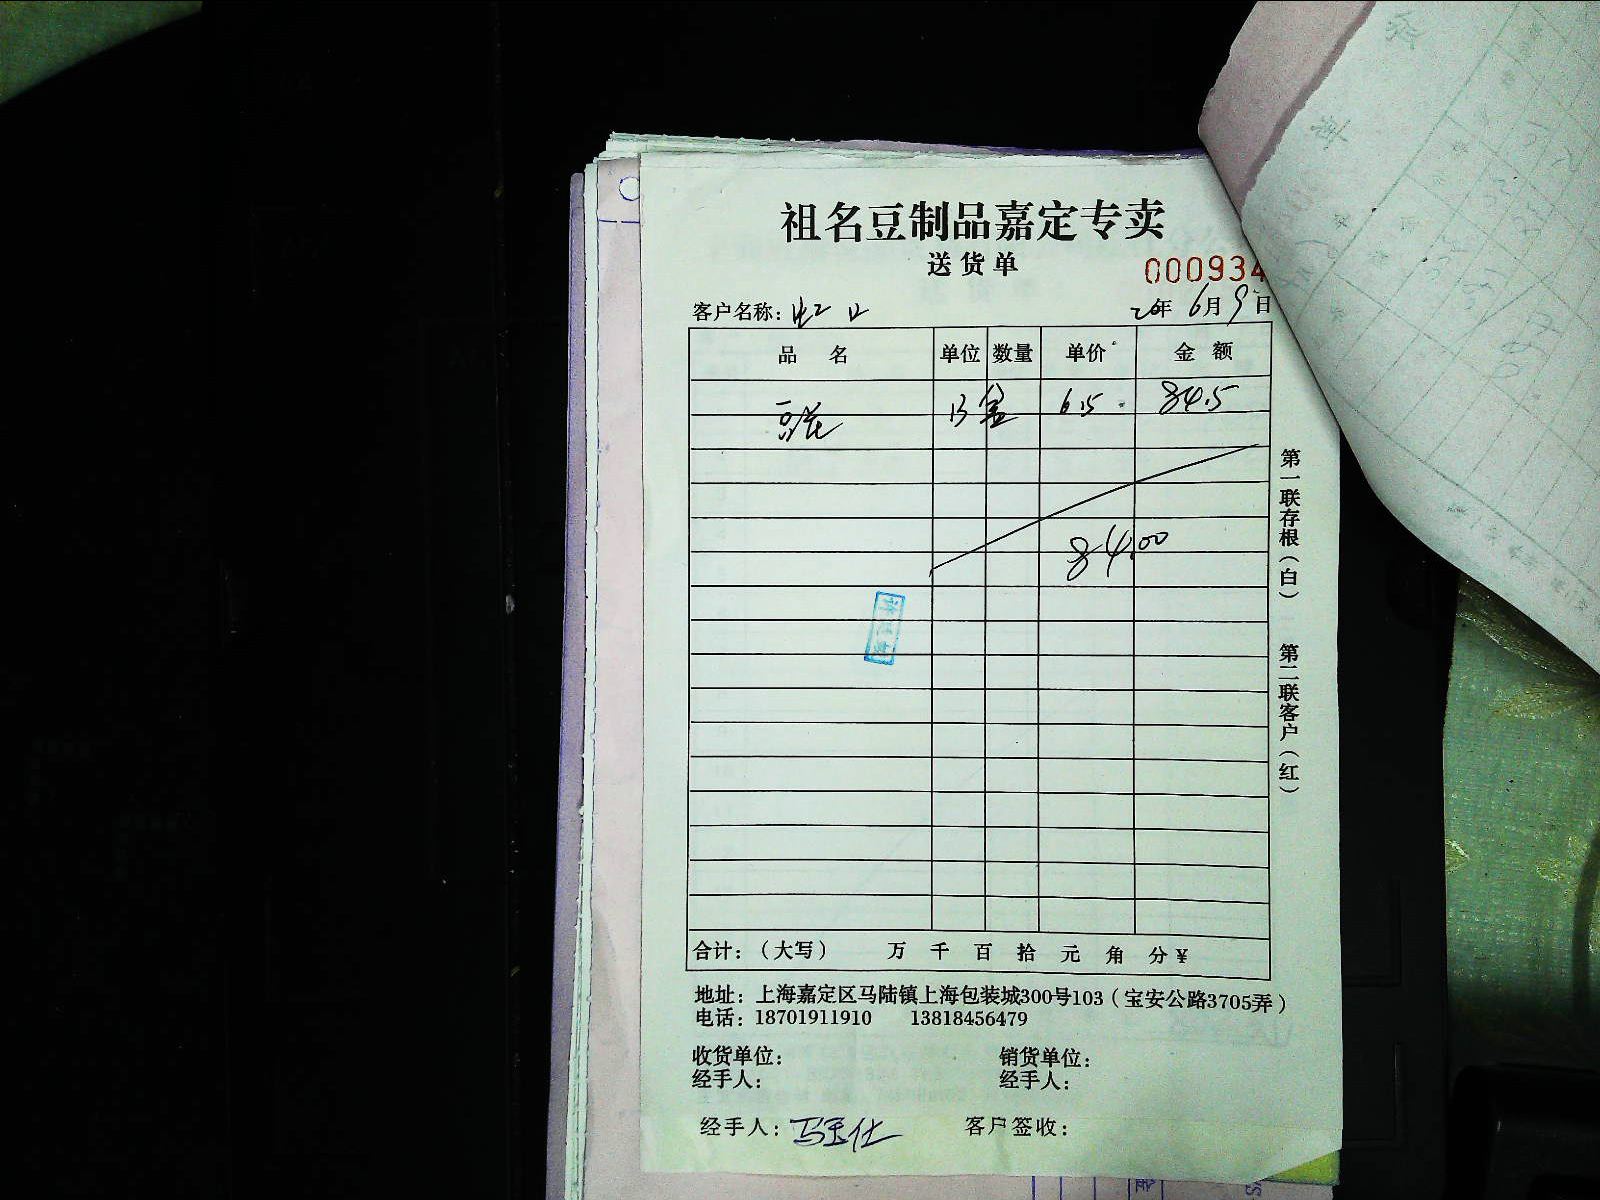 祖名豆制品嘉定专卖
送货单
000934
客户名称：虹口 20年6月9日
品名 单位 数量 单价 金额
豆花 13盒 6.5 84.5
84.00
第一联存根（白） 第二联客户（红）
合计：（大写） 万 千 百 拾 元 角 分 ¥
地址：上海嘉定区马陆镇上海包装城300号103（宝安公路3705弄）
电话：18701911910 13818456479
收货单位： 销货单位：
经手人： 经手人：
经手人： 客户签收：